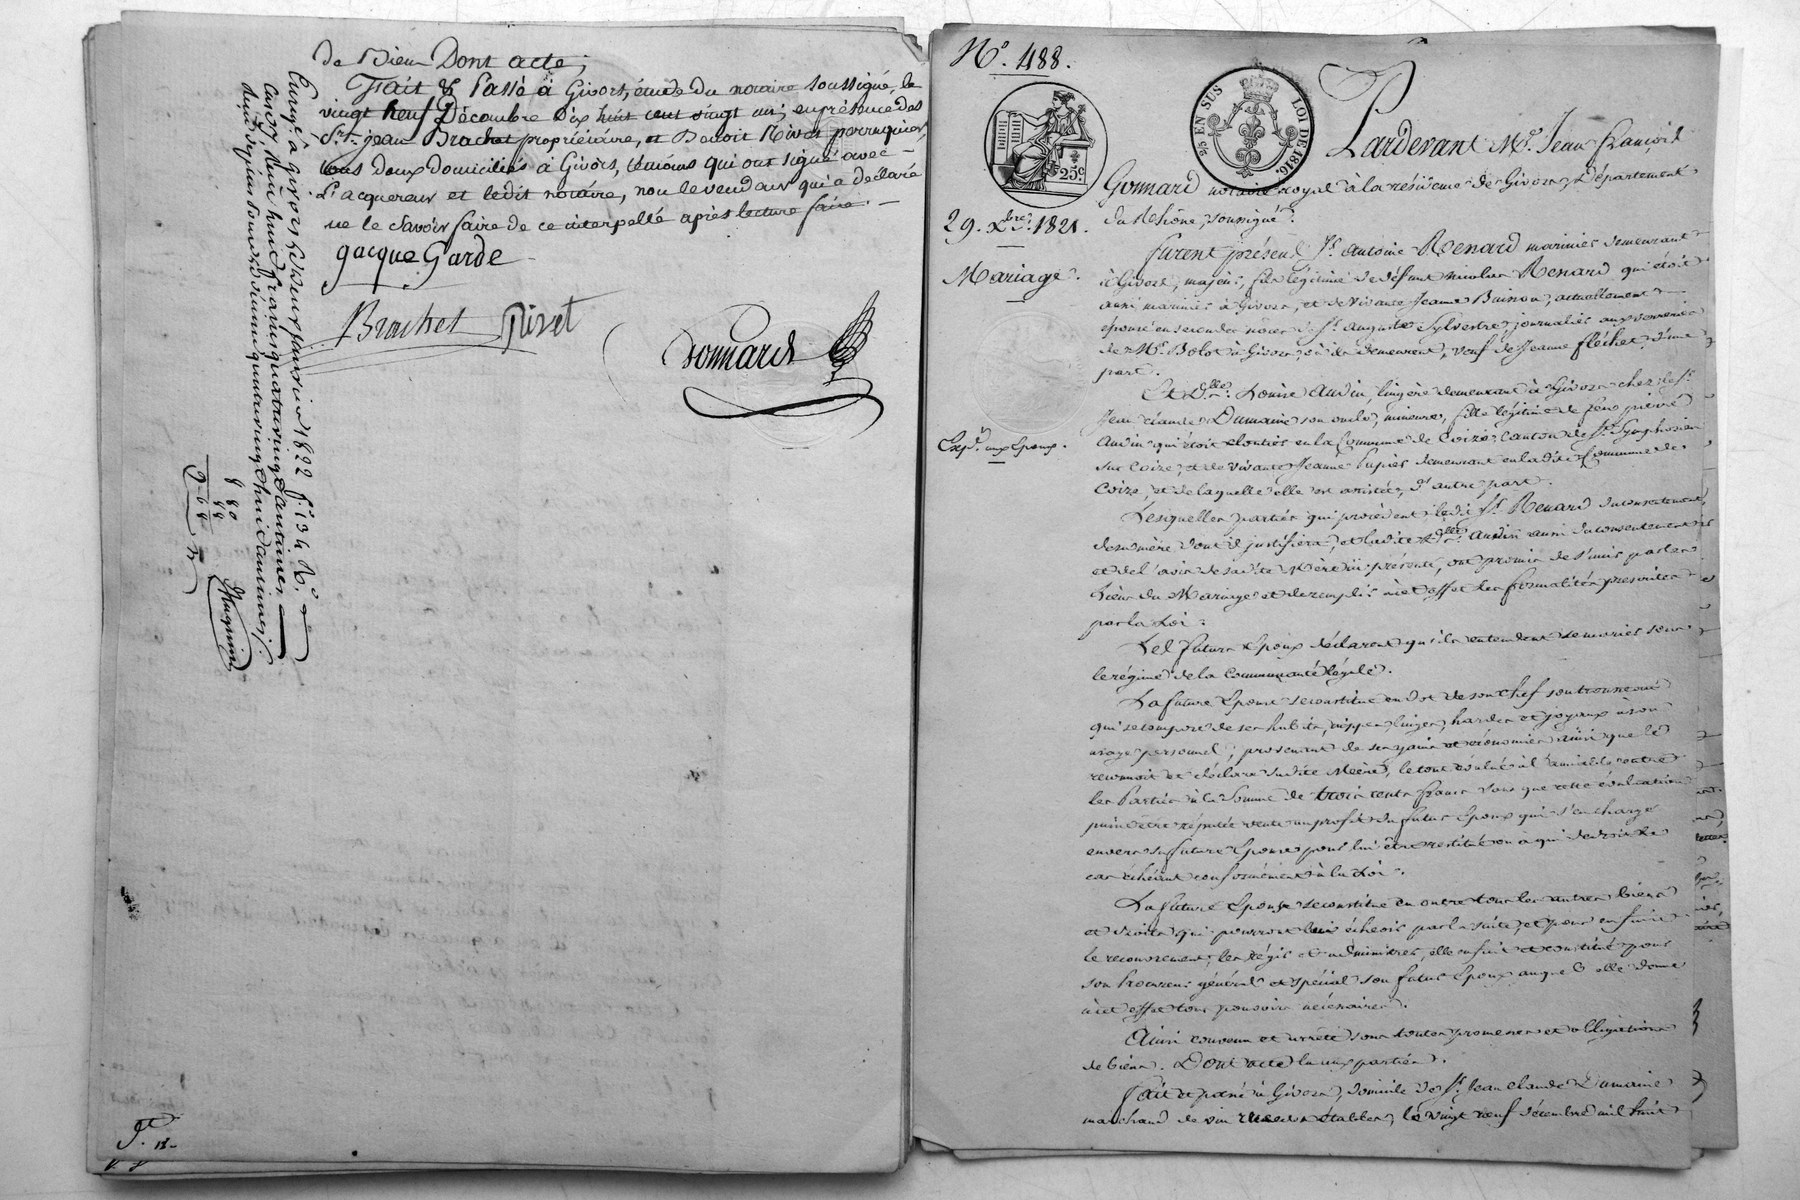 de Bien Dont acte;
Fait & Passé à Givors, étude du notaire soussigné, le
vingt neuf Décembre dix huit cent vingt un; en présence des
Srs. Jean Brachet propriétaire, et Benoit Rivet perruquier,
tous deux domiciliés à Givors, témoins qui ont signé avec
l'acquereur et ledit notaire, non le vendeur qui a déclaré
ne le savoir faire de ce interpellé après lecture faite.
Jacque Garde
Brachet Rivet
Gonnard
Enregé. à Givors le deux janvier 1822 fo. 134
huit francs quatre vingt centimes
8 80
88
9 68
No. 488.
25c.
25 EN SUS
LOI DE 1816.
29. Xbre. 1821.
Mariage.
Expon. aux Epoux.
Pardevant Me. Jean François
Gonnard notaire royal à la résidence de Givors, Département
du Rhône, soussigné.
furent présens Sr. Antoine Renard marinier demeurant
à Givors, majeur, fils légitime de défunt Nicolas Renard qui étoit
aussi marinier à Givors, et de vivante Jeanne Buisson, actuellement
epouse en secondes noces de Sr. Auguste Sylvestre, journalier aux verreries
de Mr. Bolot à Givors où ils demeurent, veuf de Jeanne fléchet, d'une
part.
Et Dlle. Louise Audin, lingère demeurant à Givors chez le Sr.
Jean Claude Dumaine son oncle, mineure, fille légitime de feu pierre
Audin qui étoit cloutier en la Commune de Coize, canton de St. Symphorien
sur Coize, et de vivante Jeanne Pupier demeurant en ladite Commune de
Coize, et de laquelle elle est assistée, d'autre part.
Lesquelles parties qui procèdent, ledit Sr. Renard du consentement
de sa mère dont il justifiera, et ladite Dlle. Audin aussi du consentement
et de l'avis de sadite Mère ici présente, ont promis de s'unir par les
liens du Mariage et de remplir à cet effet les formalités prescrites
par la Loi.
Les futurs Epoux déclarent qu'ils entendent se marier sous
le régime de la Communauté légale.
La future Epouse se constitue en dot de son chef son trousseau
qui se compose de ses habits, nippes, linges, hardes et joyaux à son
usage personnel, provenant de ses gains et économies ainsi que le
reconnoit et déclare sadite Mère, le tout évalué à l'amiable entre
les Parties à la Somme de trois cents francs sans que cette évaluation
puisse être réputée vente au profit du futur Epoux qui s'en charge
envers sa future Epouse pour lui être restitué ou à qui de droit le
cas échéant conformément à la Loi.
La future Epouse se constitue en outre tous les autres biens
et droits qui pourront lui échoir par la suite, et pour en faire
le recouvrement, les régir et administrer, elle en fait et constitue pour
son Procureur général et spécial son futur Epoux auquel elle donne
à cet effet tous pouvoirs nécessaires.
Ainsi convenu et arrêté sous toutes promesses et obligations
de biens. Dont acte lu aux parties.
Fait et passé à Givors, domicile de Sr. Jean Claude Dumaine
marchand de vin le vingt neuf décembre mil huit